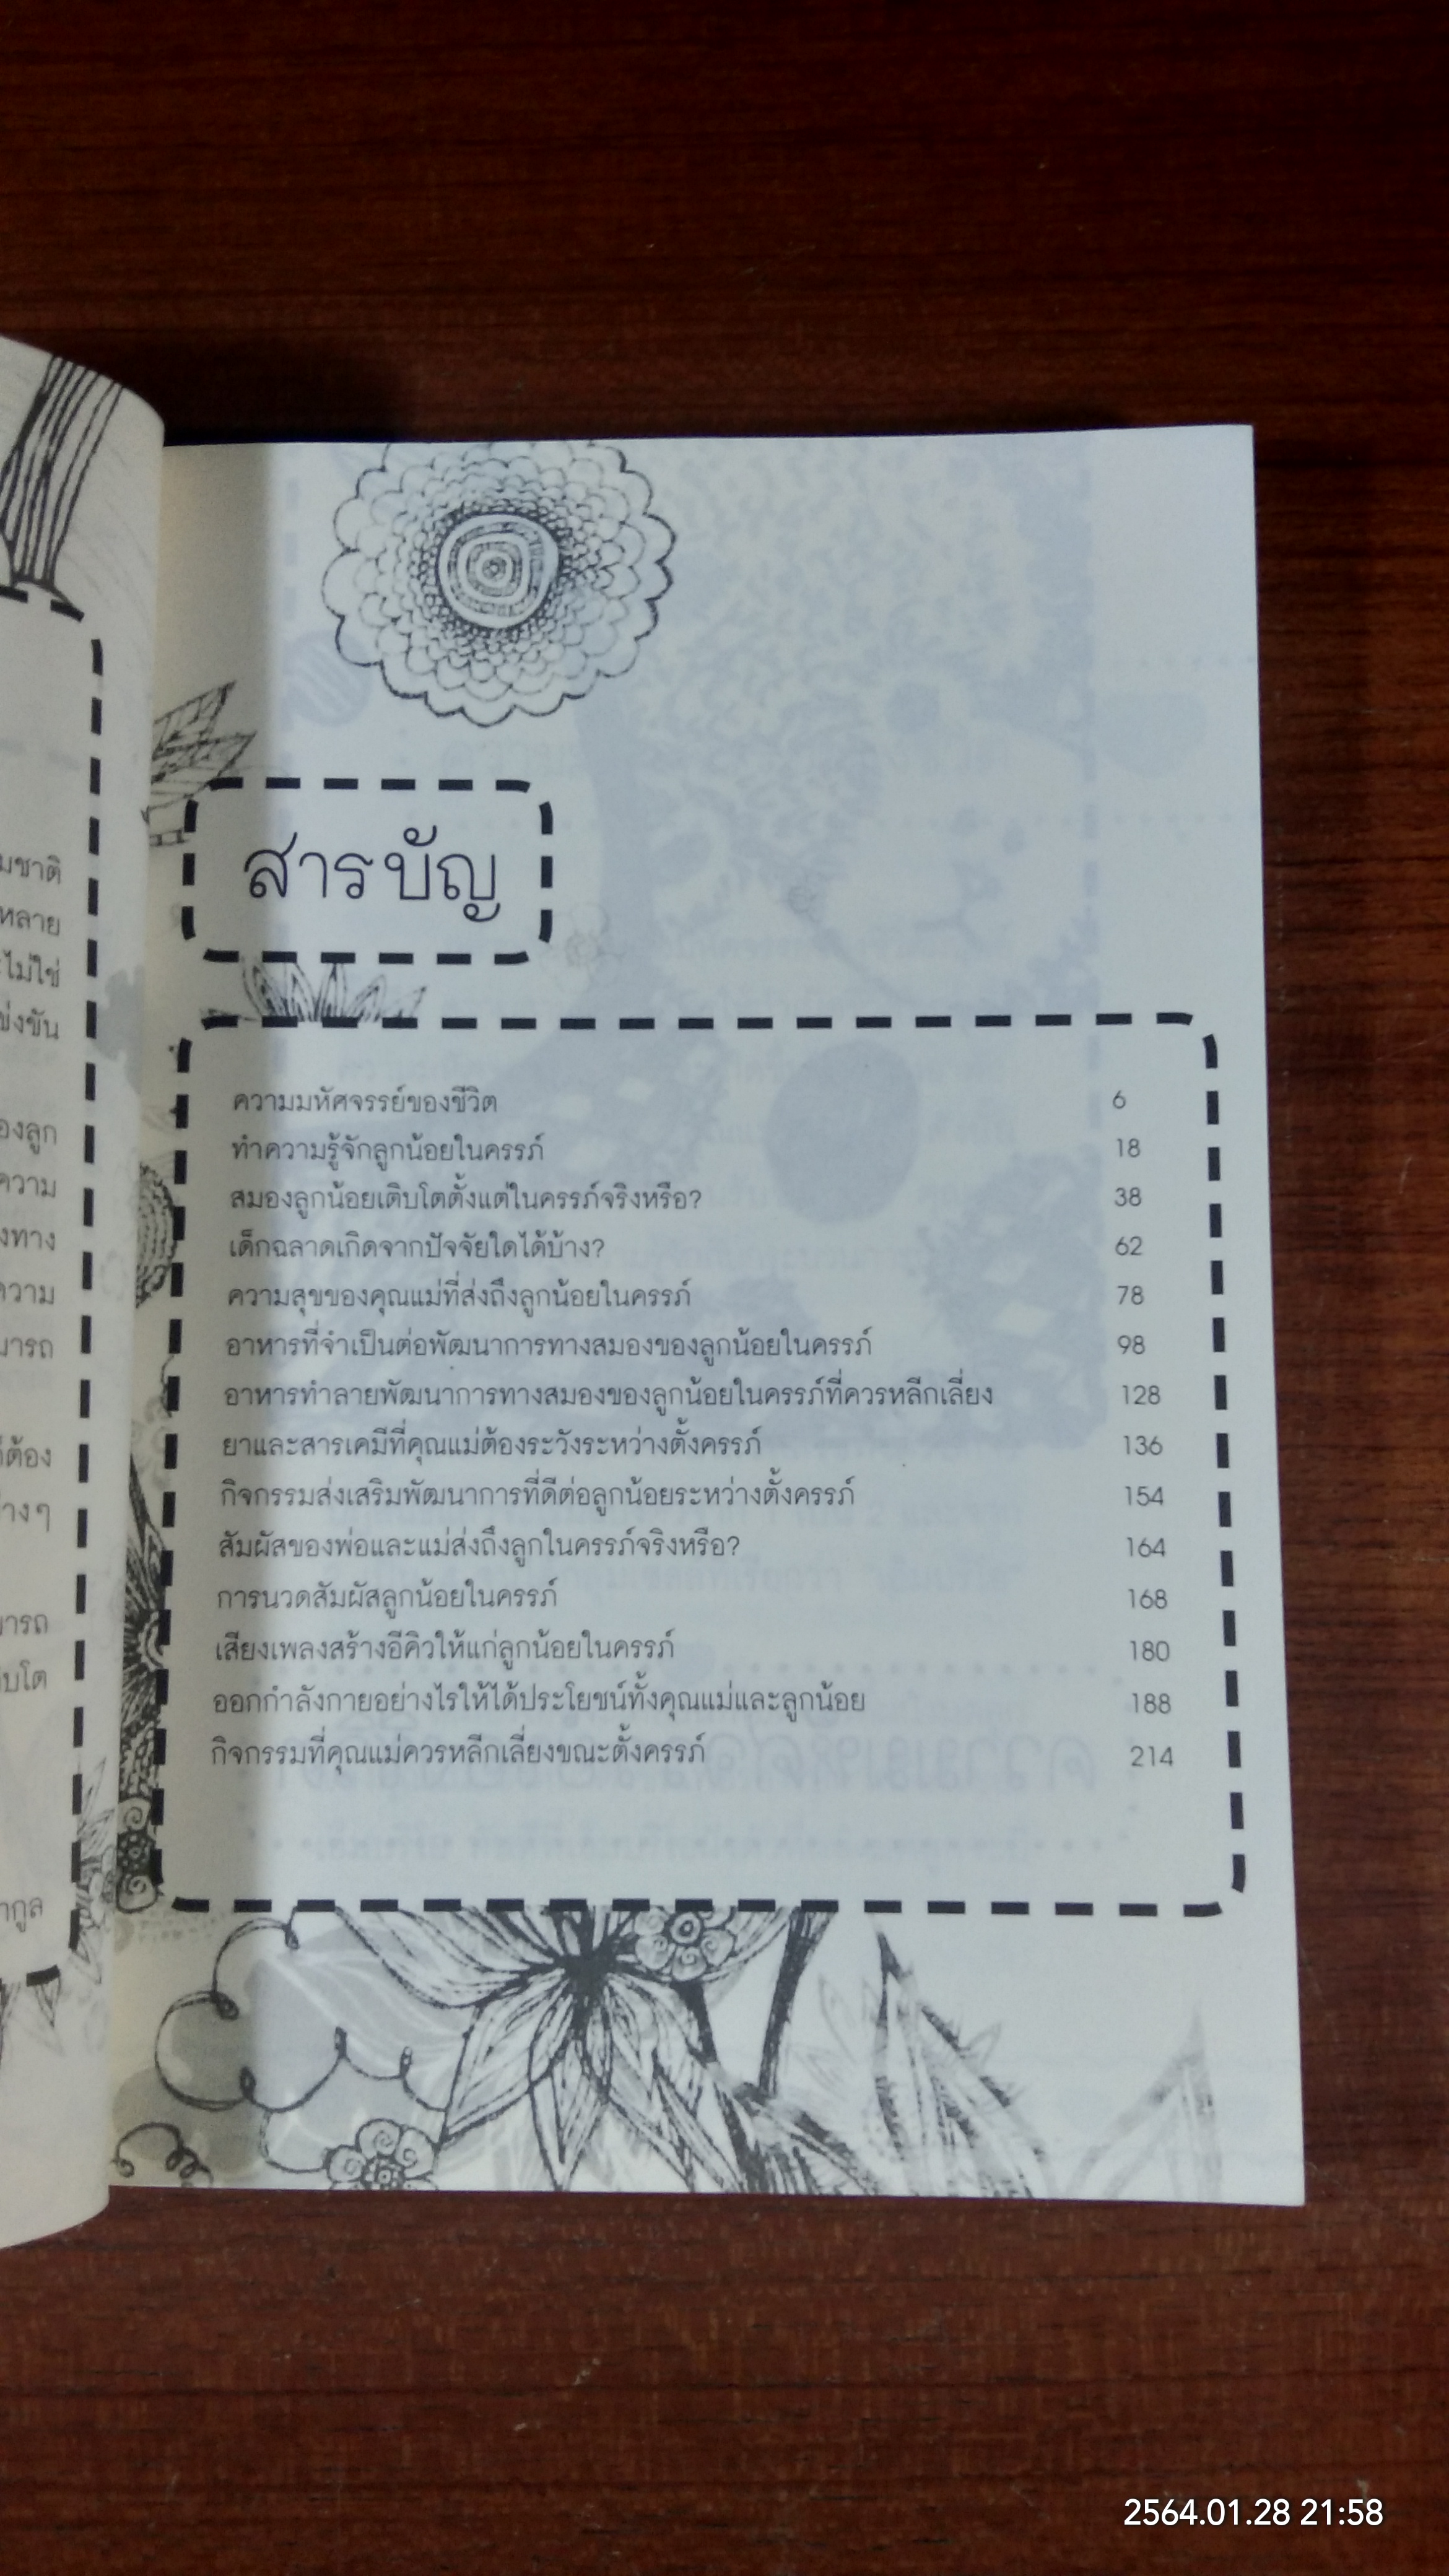 มชาติ
หลาย
ไม่ใช่
ข่งขัน
องลูก
ความ
งทาง
ความ
มารถ
ต้อง
างๆ
มารถ
บโต
ากูล
สารบัญ
ความมหัศจรรย์ของชีวิต 6
ทำความรู้จักลูกน้อยในครรภ์ 18
สมองลูกน้อยเติบโตตั้งแต่ในครรภ์จริงหรือ? 38
เด็กฉลาดเกิดจากปัจจัยใดได้บ้าง? 62
ความสุขของคุณแม่ที่ส่งถึงลูกน้อยในครรภ์ 78
อาหารที่จำเป็นต่อพัฒนาการทางสมองของลูกน้อยในครรภ์ 98
อาหารทำลายพัฒนาการทางสมองของลูกน้อยในครรภ์ที่ควรหลีกเลี่ยง 128
ยาและสารเคมีที่คุณแม่ต้องระวังระหว่างตั้งครรภ์ 136
กิจกรรมส่งเสริมพัฒนาการที่ดีต่อลูกน้อยระหว่างตั้งครรภ์ 154
สัมผัสของพ่อและแม่ส่งถึงลูกในครรภ์จริงหรือ? 164
การนวดสัมผัสลูกน้อยในครรภ์ 168
เสียงเพลงสร้างอีคิวให้แก่ลูกน้อยในครรภ์ 180
ออกกำลังกายอย่างไรให้ได้ประโยชน์ทั้งคุณแม่และลูกน้อย 188
กิจกรรมที่คุณแม่ควรหลีกเลี่ยงขณะตั้งครรภ์ 214
2564.01.28 21:58